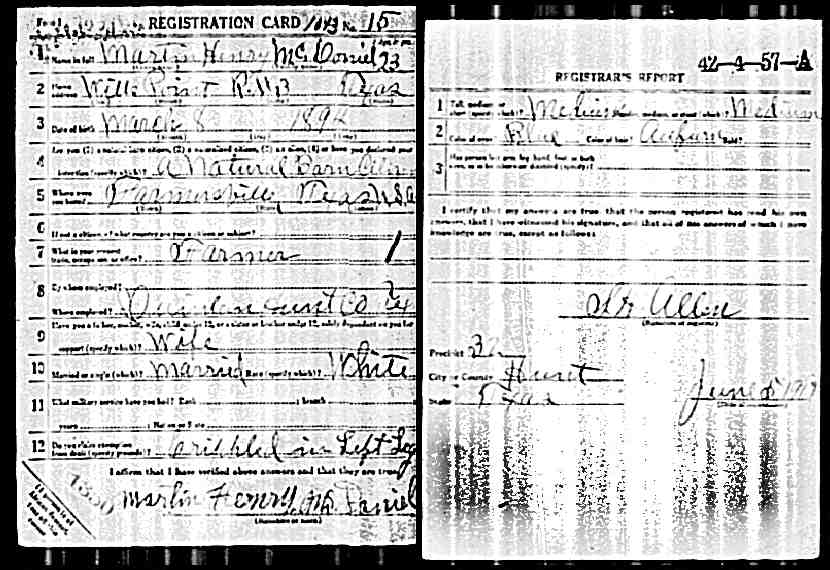 REGISTRATION CARD No. 15
1 Name in full Martin Henry McDaniel 23
2 Home address Wills Point R. No 3 Texas
3 Date of birth March 8 1892
Are you (1) a natural born citizen, (2) a naturalized citizen, (3) an alien, (4) or have you declared your
4 intention (specify which)? a Natural Born
5 Where were you born? Farmersville Texas USA
6 If not a citizen, of what country are you a citizen or subject?
7 What is your present trade, occupation, or office? Farmer 1
8 By whom employed?
Where employed? Quinlan Hunt Co
Have you a father, mother, wife, child under 12, or a sister or brother under 12, solely dependent on you for
9 support (specify which)? Wife
10 Married or single (which)? Married Race (specify which)? White
11 What military service have you had? Rank ; branch
years ; Nation or State
12 Do you claim exemption from draft (specify grounds)? Crippled in Left Leg
I affirm that I have verified above answers and that they are true
Martin Henry McDaniel
(Signature or mark)
42-4-57-A
REGISTRAR'S REPORT
1 Tall, medium, or short (specify which)? Medium Slender, medium, or stout (which)? Medium
2 Color of eyes? Blue Color of hair? Auburn Bald?
3 Has person lost arm, leg, hand, foot, or both eyes, or is he otherwise disabled (specify)?
I certify that my answers are true, that the person registered has read his own
answers, that I have witnessed his signature, and that all of his answers of which I have
knowledge are true, except as follows:
Allen
(Signature of registrar)
Precinct 32
City or County Hunt
State Texas June 5 1917